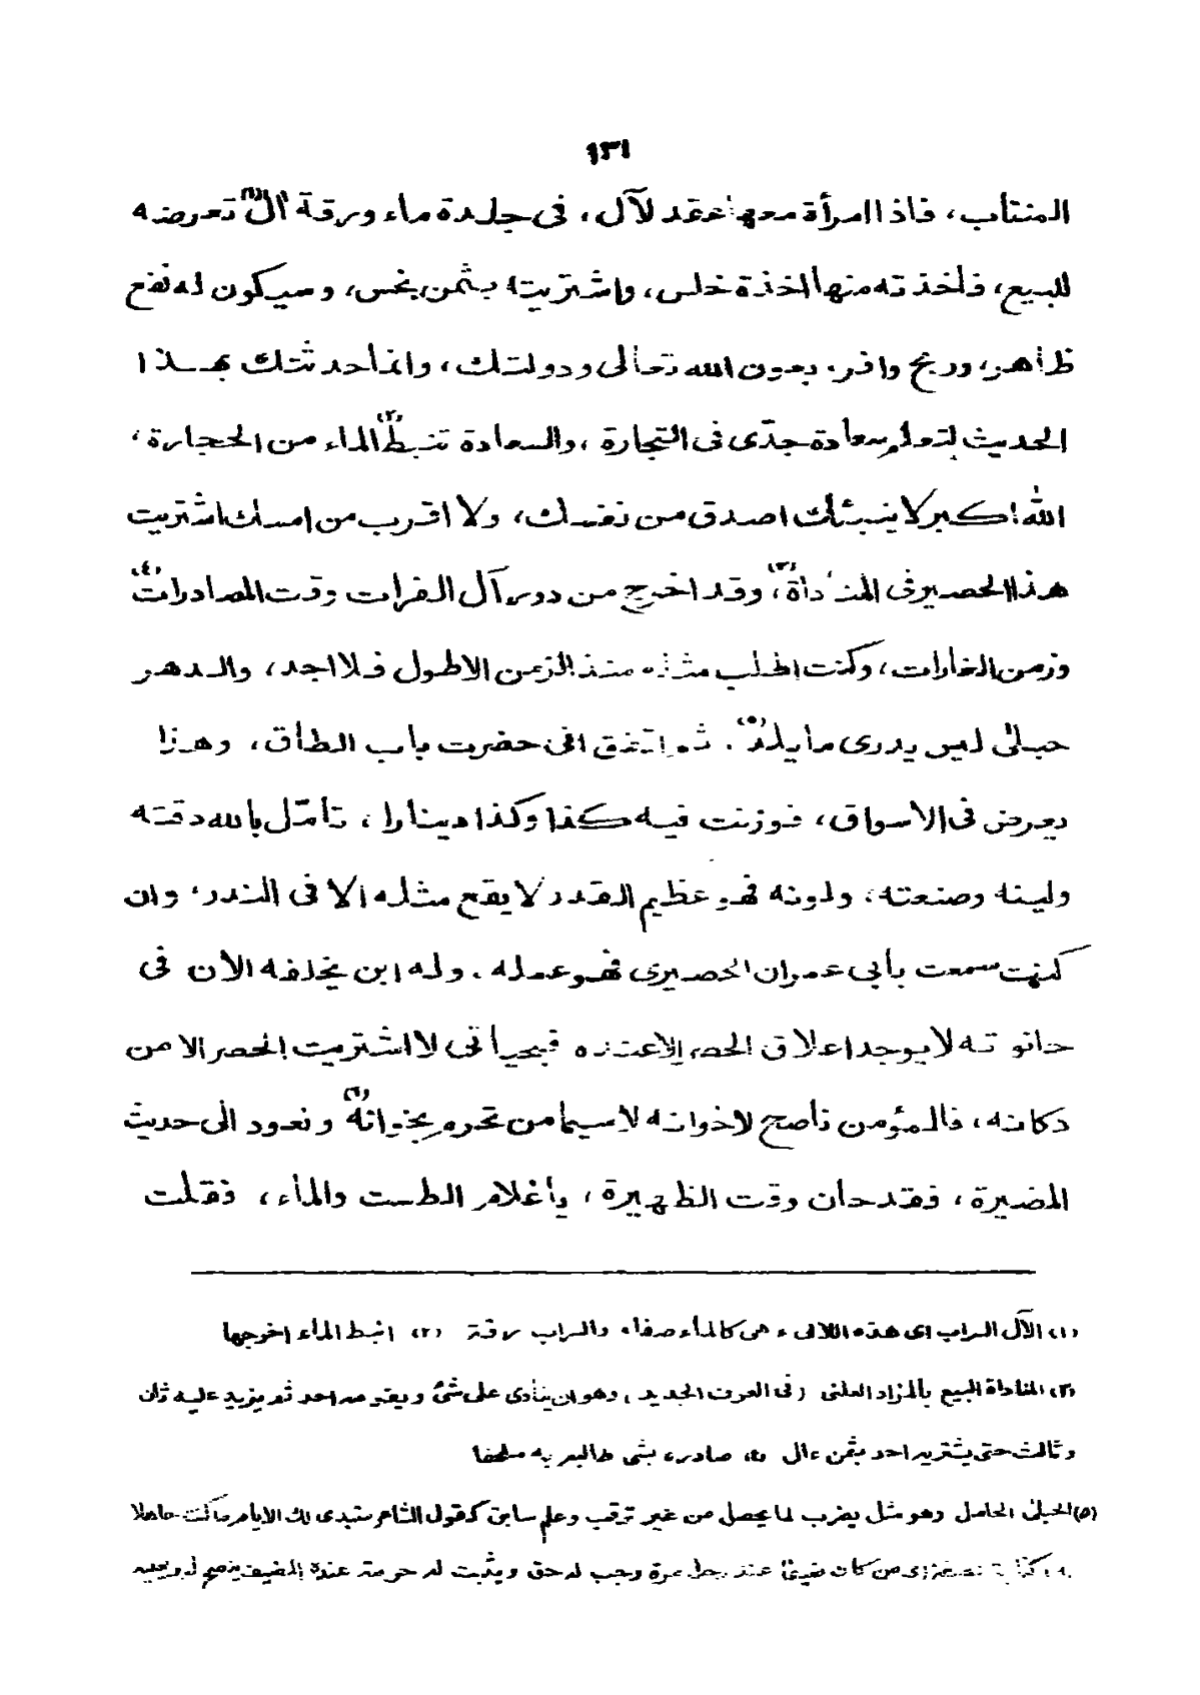 ١٣١
المنتاب، فاذا امرأة معها عقد لآل، فى جلدة ماء ورقة آل(١) تعرضه
للبيع، فأخذته منها اخذة خلس، واشتريته بثمن بخس، وسيكون له نفع
ظاهر، وربح وافر. بعون الله تعالى ودولتك، وانما حدثتك بهــذا
الحديث لتعلم سعادة جدّى فى التجارة، والسعادة تنبط(٢) الماء من الحجارة،
الله اكبر لا ينبئك اصدق من نفسك، ولا اقرب من امسك اشتريت
هذا الحصير فى المناداة(٣)، وقد اخرج من دور آل الفرات وقت المصادرات(٤)
وزمن الغارات، وكنت اطلب مثله منذ الزمن الاطول فلا اجد، والــدهر
حبلى ليس يدرى ما يلد(٥). ثم اتفق انى حضرت باب الطاق، وهذا
يعرض فى الاسواق، فوزنت فيه كذا وكذا دينارا، تأمّل بالله دقته
ولينه وصنعته، ولونه فهو عظيم القدر لا يقع مثله الا فى الندر، وان
كنت سمعت بأبى عمران الحصيرى فهو عمله. وله ابن يخلفه الآن فى
حانوته لا يوجد اعلاق الحصر إلا عنده فبحياتى لا اشتريت الحصر الا من
دكانه، فالمؤمن ناصح لاخوانه لاسيما من تحرم بخوانه(٦) ونعود الى حديث
المضيرة، فقد حان وقت الظهيرة، ياغلام الطست والماء، فقلت
(١) الآل السراب اى هذه اللآلىء هى كالماء صفاء والسراب رقة (٢) انبط الماء اخرجها
(٣) المناداة البيع بالمزاد العلنى (فى العرف الجديد) وهو ان ينادى على شئ ويعتبر من احد ثم يزيد عليه ثان
وثالث حتى يشتريه احد بثمن عال (٤) صادره بشى طالبه به ملحفا
(٥) الحبلى الحامل وهو مثل يضرب لما يحصل من غير ترقب وعلم سابق كقول الشاعر ستبدى لك الايام ما كنت جاهلا
من كان ضيفا عند رجل مرة وجب له حق ويثبت له حرمة عنده المضيف ينصح له ويحبه